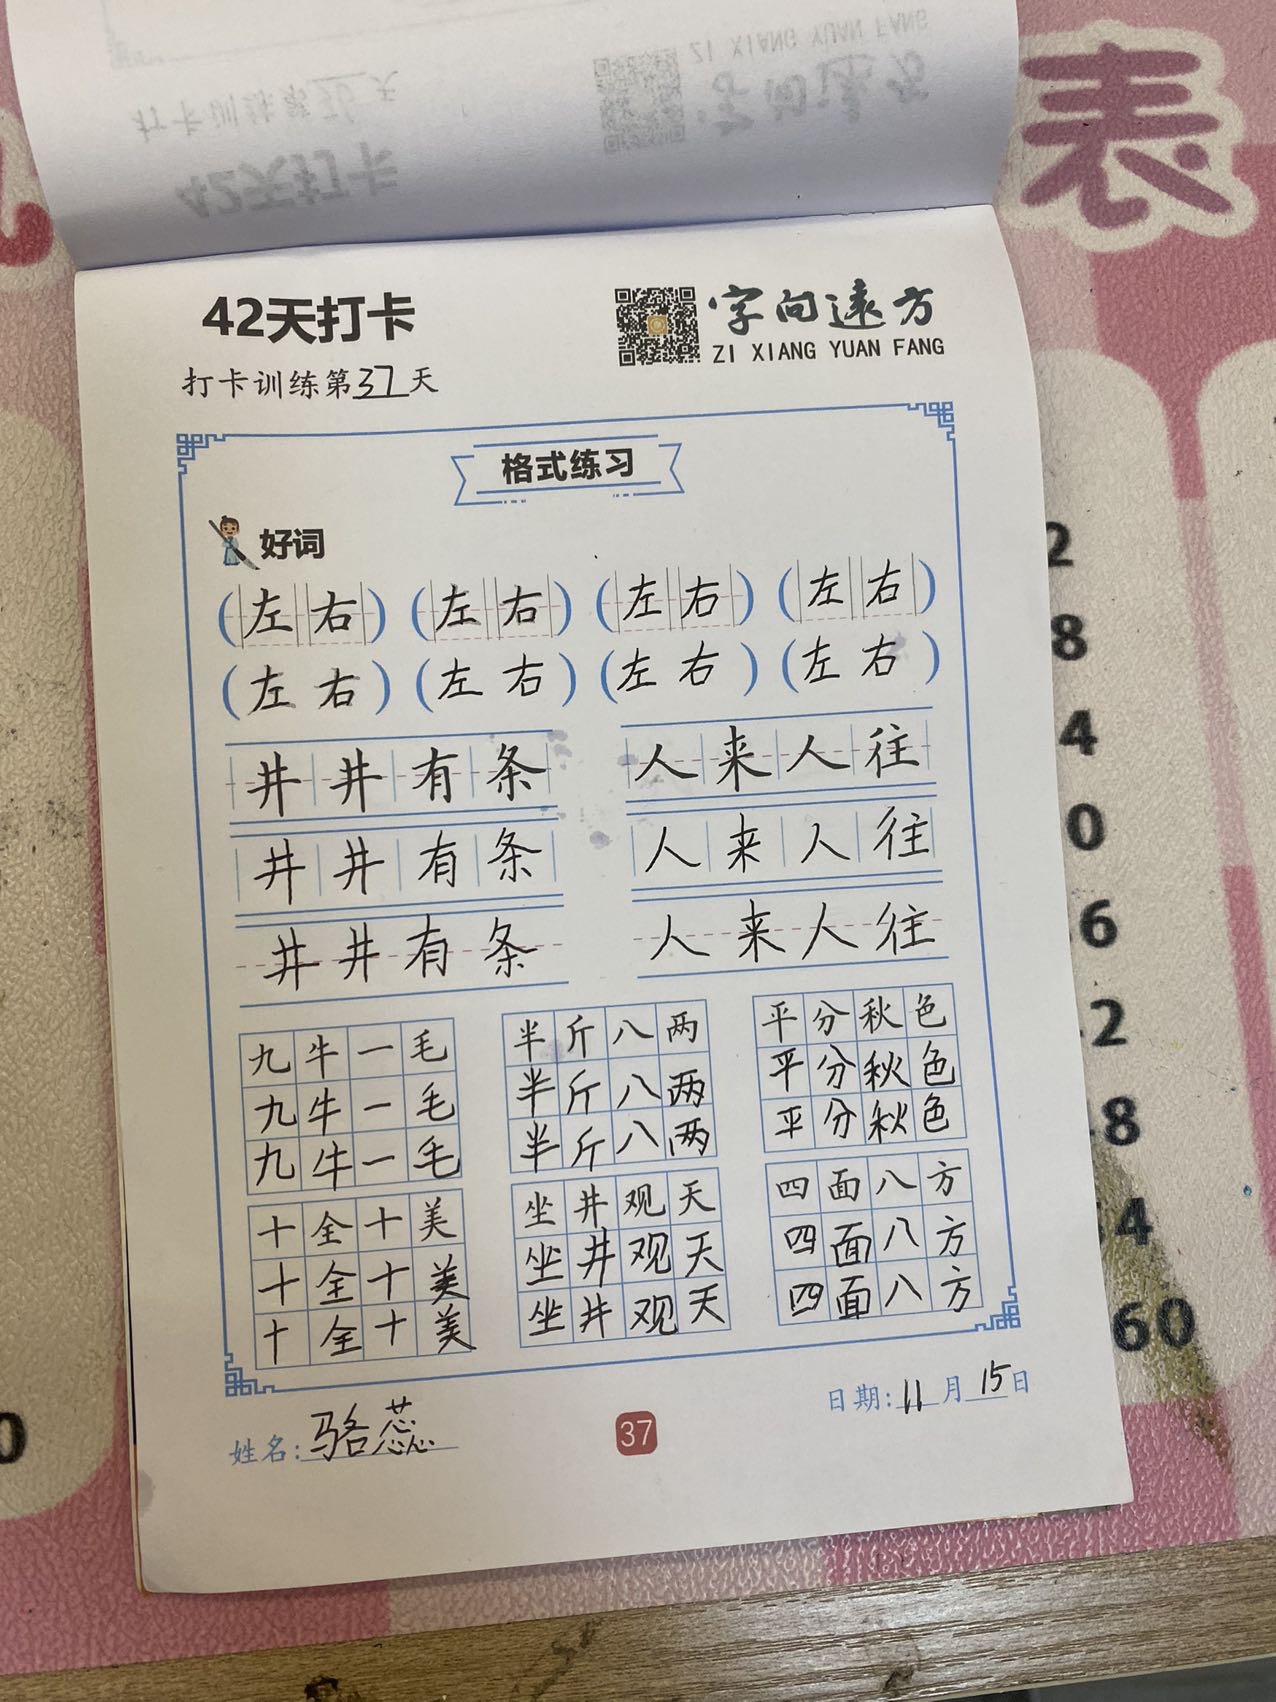 42天打卡
字向远方
ZI XIANG YUAN FANG
打卡训练第37天
格式练习
好词
(左右) (左右) (左右) (左右)
(左右) (左右) (左右) (左右)
井井有条 人来人往
井井有条 人来人往
井井有条 人来人往
九牛一毛 半斤八两 平分秋色
九牛一毛 半斤八两 平分秋色
九牛一毛 半斤八两 平分秋色
十全十美 坐井观天 四面八方
十全十美 坐井观天 四面八方
十全十美 坐井观天 四面八方
姓名:骆蕊
37
日期:11月15日
表
2
8
4
0
6
2
8
4
60
0